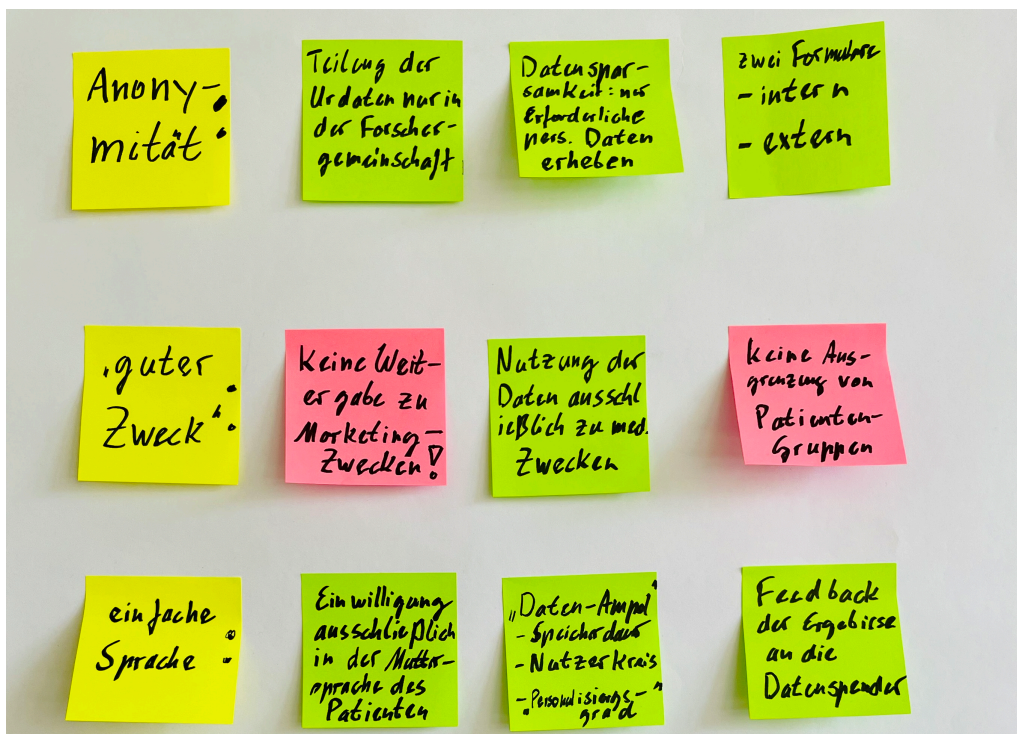 Anony-:
mität
Teilung der
Urdaten nur in
der Forscher-
gemeinschaft
Datenspar-
samkeit: nur
Erforderliche
pers. Daten
erheben
zwei Formulare
- intern
- extern
"guter
Zweck":
Keine Weit-
ergabe zu
Marketing-
Zwecken!
Nutzung der
Daten ausschl
ießlich zu med.
Zwecken
Keine Aus-
grenzung von
Patienten-
Gruppen
einfache
Sprache:
Einwilligung
ausschließlich
in der Mutter-
sprache des
Patienten
„Daten-Ampel"
- Speicherdauer
- Nutzerkreis
- "Personalisierungs-"
grad
Feedback
der Ergebnisse
an die
Datenspender